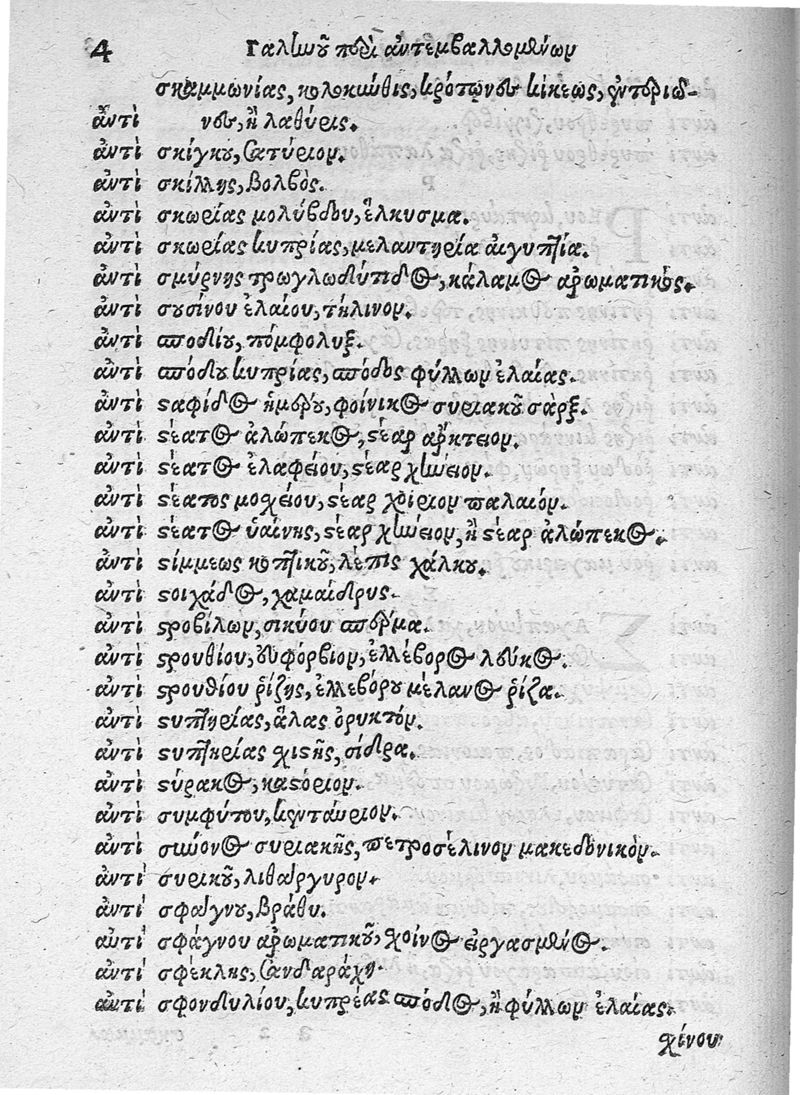 4 Γαλίωοῦ πεὶ ἀντεμβαλλομένων
σκαμμωνίας, κολοκιωθις, κρότωνος κίκεως, ἐντεριώ-
ἀντὶ νου, ἢ λαθύρις.
ἀντὶ σκίγκου, σατύριον.
ἀντὶ σκίλλης, βολβὸς.
ἀντὶ σκωρίας μολύβδου, ἕλκυσμα.
ἀντὶ σκωρίας κυπρίας, μελαντηρία αἰγυπτία.
ἀντὶ σμύρνης τρωγλοδύτιδος, κάλαμος ἀρωματικὸς.
ἀντὶ σουσίνου ἐλαίου, τήλινον.
ἀντὶ σποδίου, πόμφολυξ.
ἀντὶ σπόδου κυπρίας, σπόδος φύλλων ἐλαίας.
ἀντὶ σαφίδος ἡμέρου, φοίνικος συριακοῦ σὰρξ.
ἀντὶ στέατος ἀλώπεκος, στέαρ ἄρκτειον.
ἀντὶ στέατος ἐλαφείου, στέαρ χήνειον.
ἀντὶ στέατος μοχείου, στέαρ χοίριον παλαιόν.
ἀντὶ στέατος ὑαίνης, στέαρ χήνειον, ἢ στέαρ ἀλώπεκος.
ἀντὶ στίμμεως κοπτικοῦ, λέπις χάλκου.
ἀντὶ στοιχάδος, χαμαίδρυς.
ἀντὶ στροβίλων, σικύου σπέρμα.
ἀντὶ στρουθίου, εὐφόρβιον, ἐλλέβορος λεύκος.
ἀντὶ στρουθίου ῥίζης, ἐλλεβόρου μέλανος ῥίζα.
ἀντὶ στυπτηρίας, ἅλας ὀρυκτόν.
ἀντὶ στυπτηρίας χιστῆς, σίδιρα.
ἀντὶ στύρακος, καστόριον.
ἀντὶ συμφύτου, κενταύριον.
ἀντὶ σίνωνος συριακῆς, πετροσέλινον μακεδονικὸν.
ἀντὶ συρικοῦ, λιθάργυρον.
ἀντὶ σφαίγνου, βράθυ.
ἀντὶ σφάγνου ἀρωματικοῦ, χοῖνος εἰργασμένος.
ἀντὶ σφέκλης, σανδαράχη.
ἀντὶ σφονδυλίου, κυπρέας σπόδος, ἢ φύλλων ἐλαίας.
χίνου